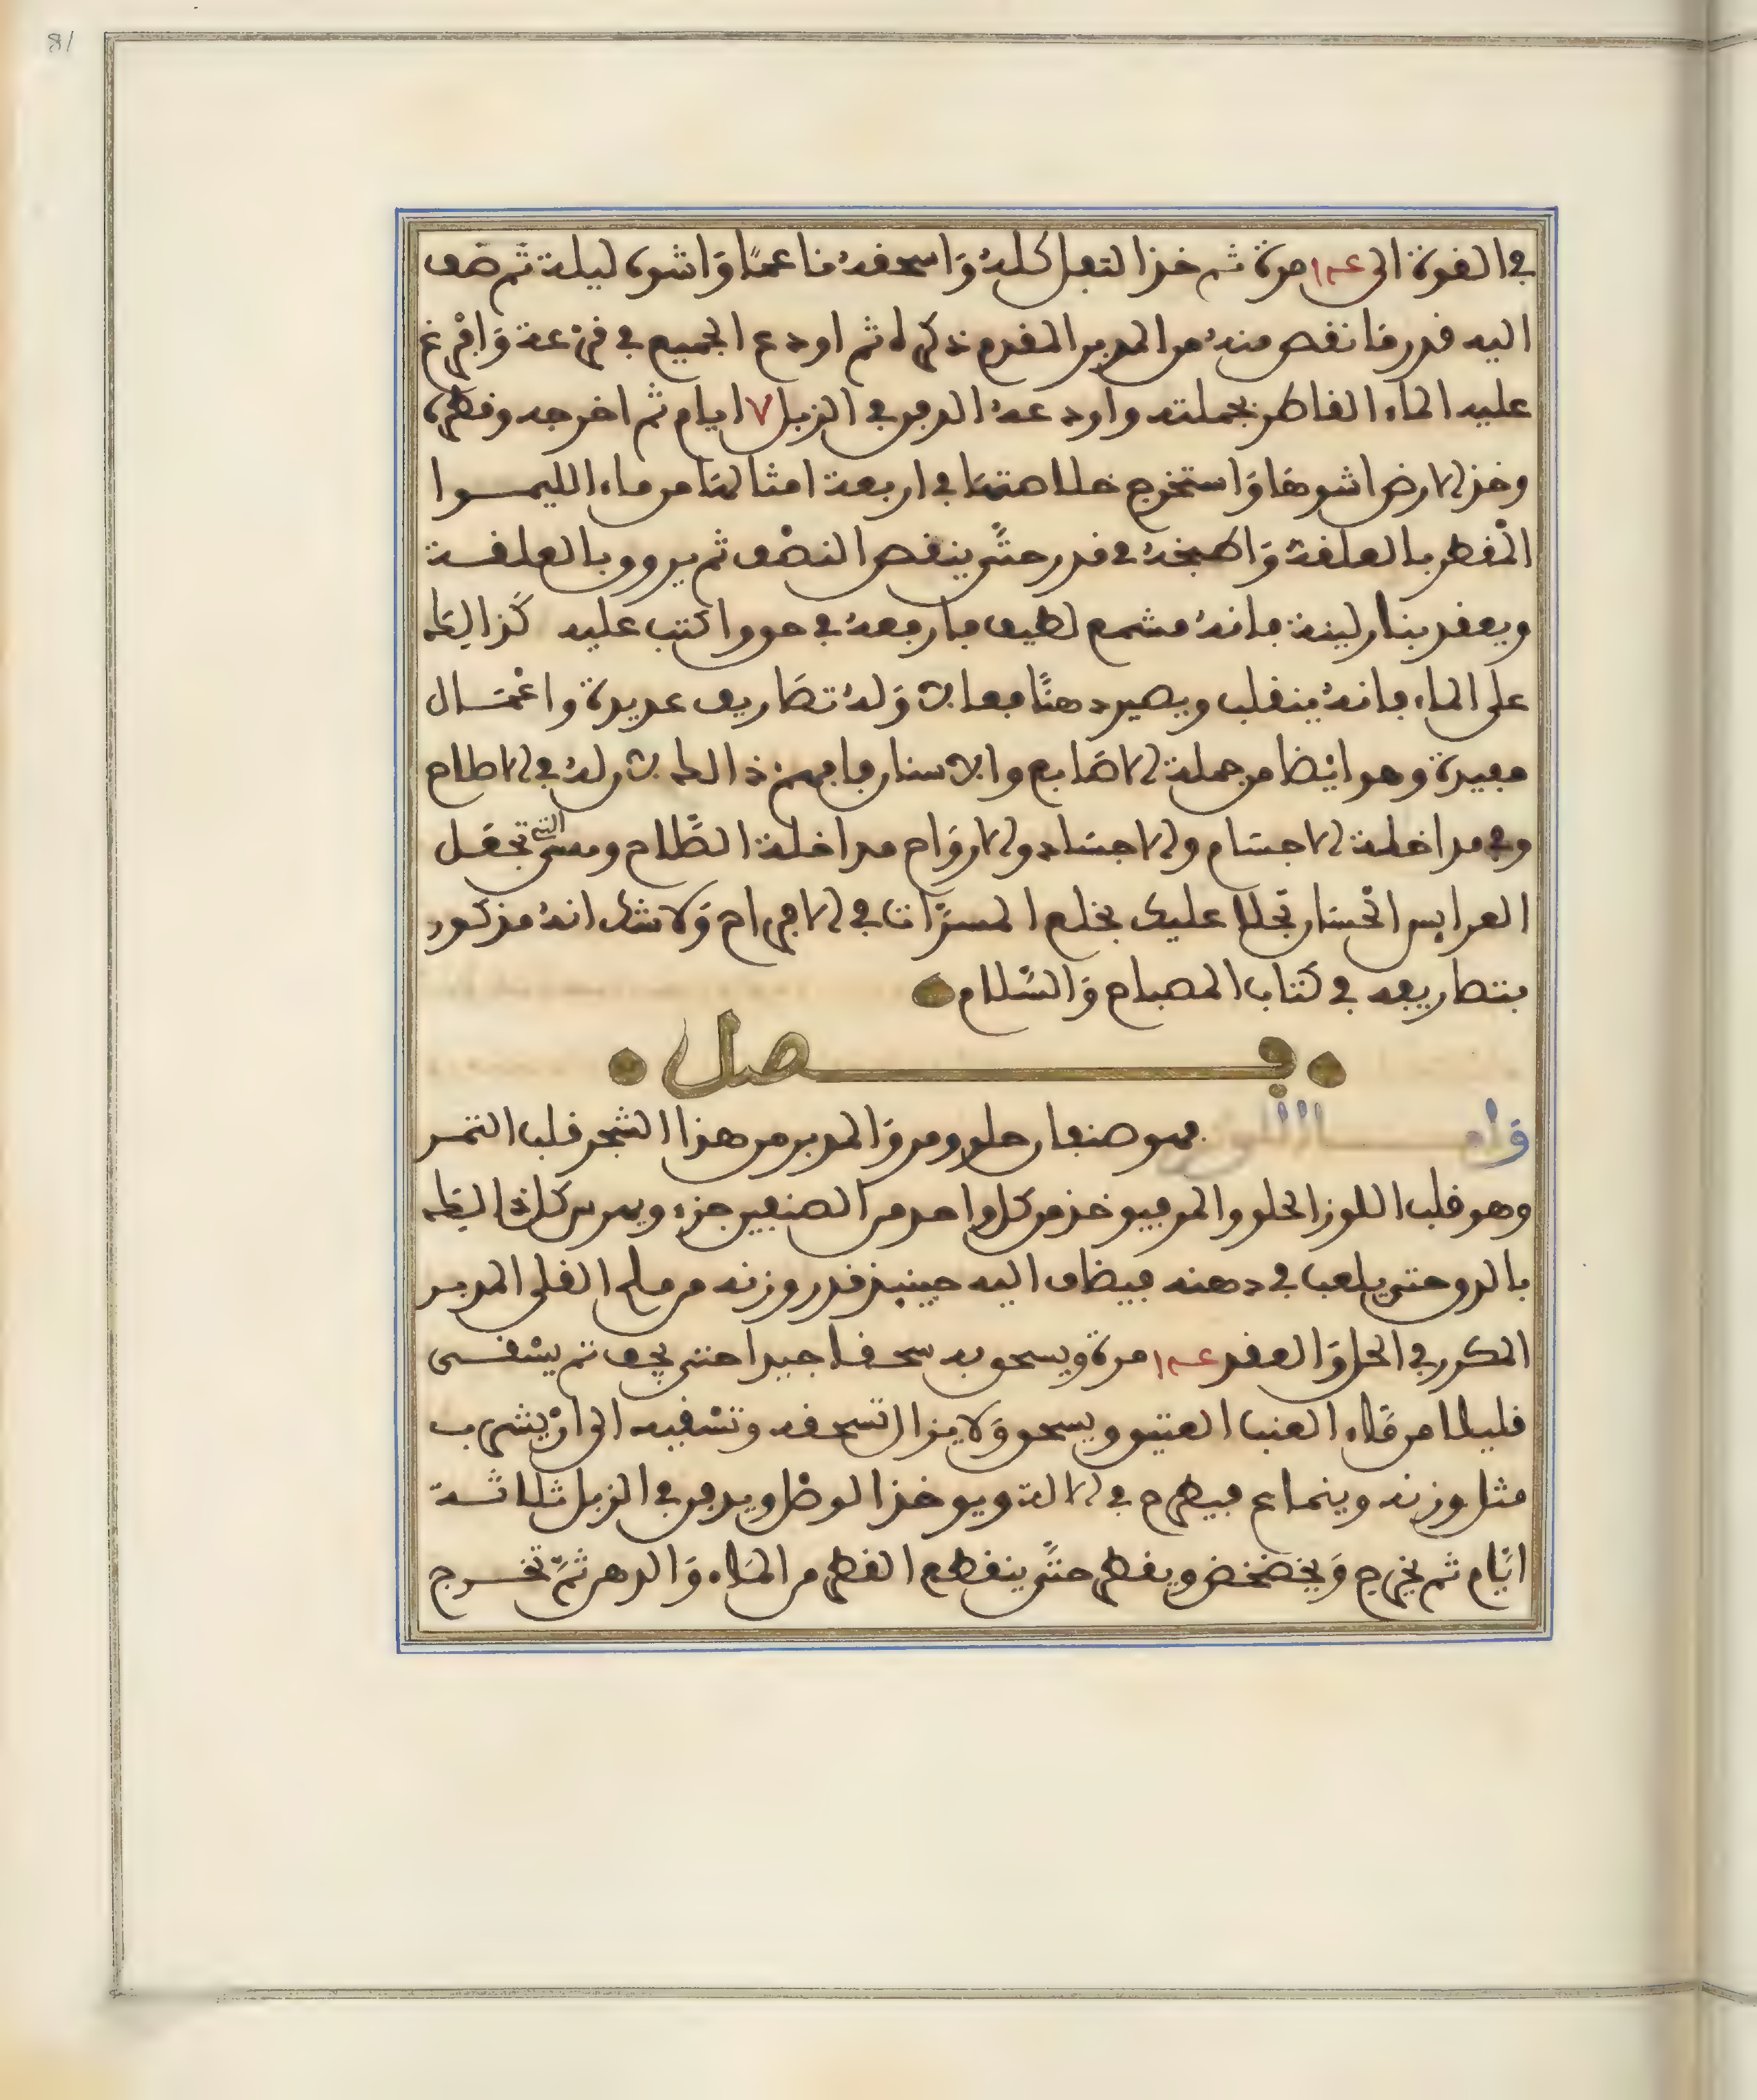 81
في القوة الى عـ١ مرة ثم خذ الثفل كلهُ وَاسحقهُ نَاعمًا وَاشوه ليلة ثم ضف
اليه قدر مَا نقص منهُ من المدبر المقدم ذكره ثم اودع الجميع في قرْعة وَافرغ
عليه الماء القاطر بجملته واودعهُ الدفن في الزبل ٧ ايام ثم اخرجه وقطره
وخذ الارض اشوهَا وَاستخرج خلاصتهَا في اربعة امثالهَا من ماء الليمــوا
المْقطر بالعلقة وَاطبخهُ في قدر حتَّى ينقص النصْف ثم يروق بالعلقــة
ويعقد بنار لينة فانهُ مشمع لطيف فارفعهُ في حق واكتب عليه كَذا يلقَا
على الماء فانهُ ينقلب ويصير دهنًا فعالا وَلهُ تصَاريف عديدة واعْمَــال
مفيدة وهو ايْضا من جملة الاصَابع والاسنان فافهمن ذا الحلا لان لهُ في الاملاح
وفي مداخلة الاجسَام والاجسَاد والارْوَاح مداخلة الصَّلاح ومعنى التي تجعَــل
العرايس الحْسَان تجلا عليك بخلع المسرَّات في الافراح وَلا شك انهُ مذكور
بتصاريفه في كتاب المصباح وَالسَّلام
فــــصل
وَامــــا اللوز فهو صنفان حلو ومر وَالمدبر من هذا الشجر قلب الثمــر
وهو قلب اللوز الحلو والمر فيوخذ من كل واحد من الصنفين جزء ويهرس كل ذالِكَ
بالدق حتى يلعب في دهنه فيضاف اليه حينيذ قدر وزنه من ملح القلى المدبــر
المكرر في الحل وَالعقد عـ١ مرة ويسحق به سحقــا جيدا حتى يجف ثم يسْقــى
قليلا من مَاء العنب العتيق ويسحق وَلا يزال تسحقه وتسْقيه الى انْ يشرب
مثل وزنه وينماع فيطرح في الالة ويوخذ الوصْل ويدفن في الزبل ثلاثَــة
ايَّام ثم يخرج وَيخضخض ويقطر حتَّى ينقطع القطر من المَاء وَالدهن ثمَّ تخــرج